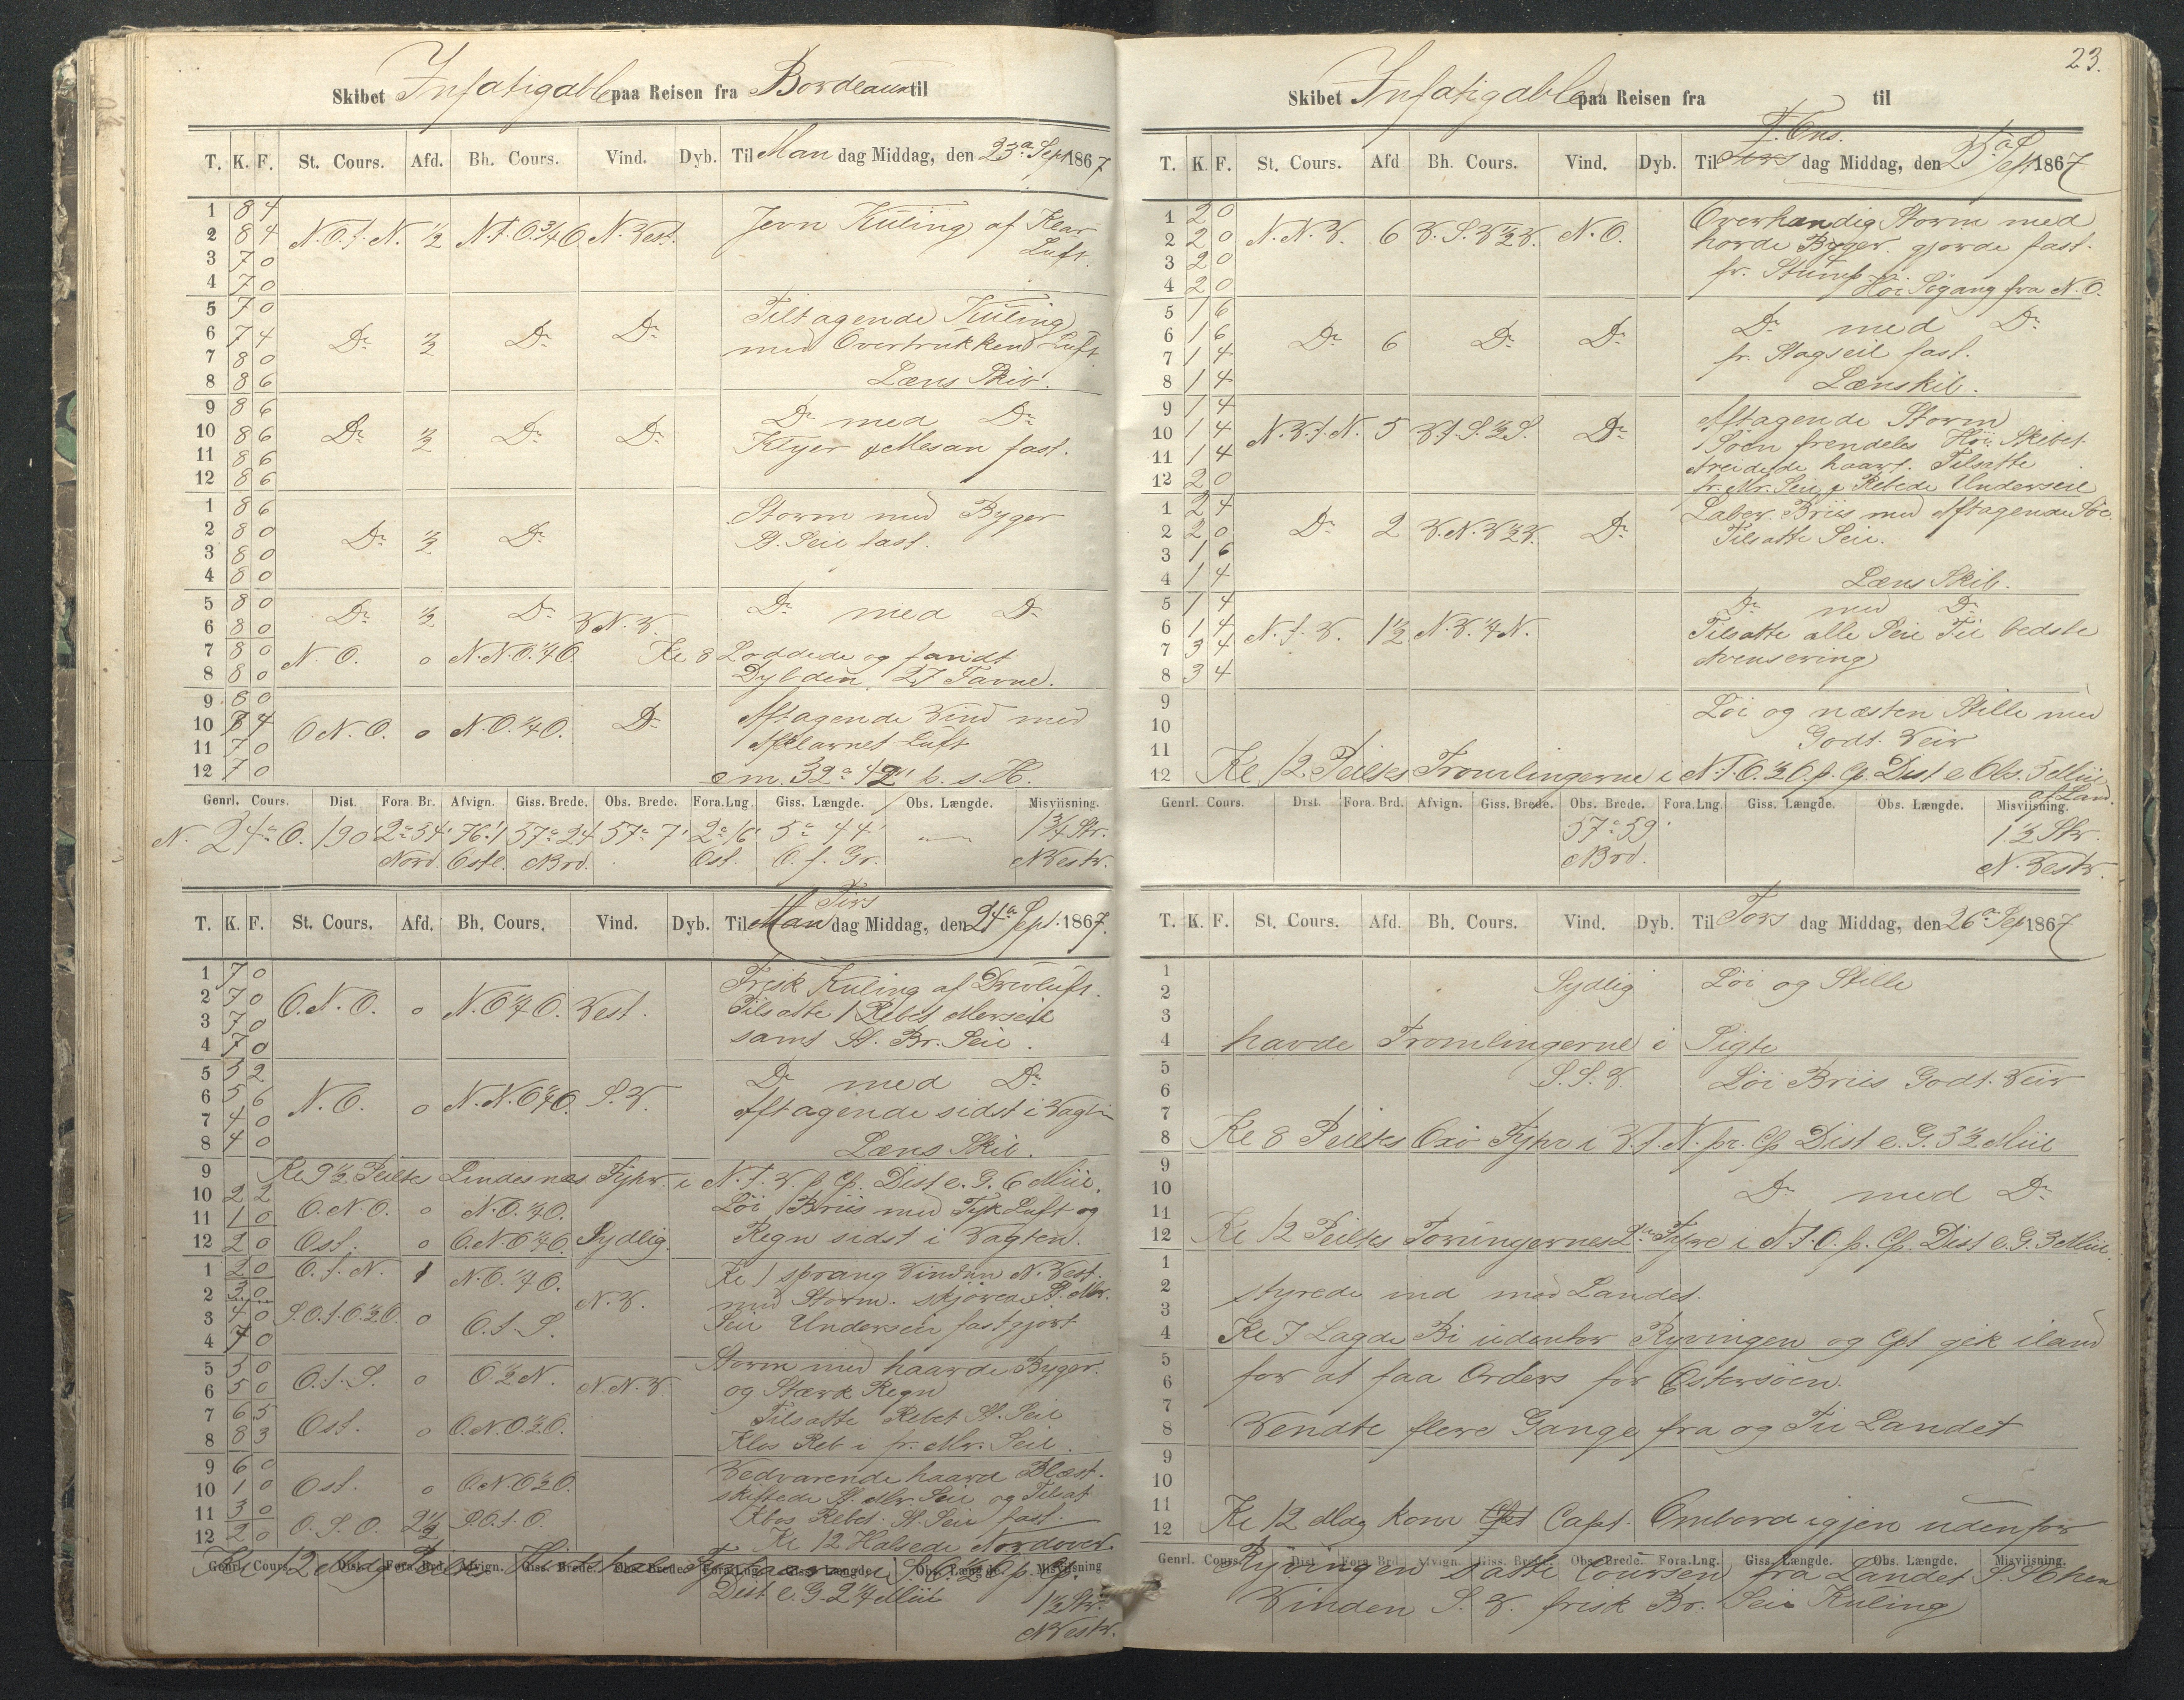 Skibet Infatigable paa Reisen fra Bordeaux til
T. K. F. St. Cours. Afd. Bh. Cours. Vind. Dyb. Til Man dag Middag, den 23a Sept 1867
1 8 4
2 8 4 N.O.t.N. ½ N.t.O.¾O. N.Vest. Jevn Kuling af Klar
3 7 0 Luft.
4 7 0
5 7 0 Tiltagende Kuling
6 7 4 Do ½ Do Do med Overtrukken Luft
7 8 0
8 8 6 Læns Skib.
9 8 6 Do med Do
10 8 6 Do ½ Do Do Klyver & Mesan fast.
11 8 6
12 8 6
1 8 6 Storm med Byger
2 8 0 Do ½ Do St. Seil fast.
3 8 0
4 8 0
5 8 0 Do ½ Do Do med Do
6 8 0 V.N.V.
7 8 0 N.O. 0 N.N.O.¼O. Kl 8 Loddede og fandt
8 8 0 Dybden 27 Favne.
9 8 0 Aftagende Vind med
10 8 4 O.N.O. 0 N.O.¼O. Do Afklarnet Luft
11 7 0
12 7 0 om. 32° 42' b. s. H.
Genrl. Cours. Dist. Fora. Br. Afvign. Giss. Brede. Obs. Brede. Fora.Lng. Giss. Længde. Obs. Længde. Misviisning.
N. 24° O. 190 2° 54' 76.1 57° 24' 57° 7' 2° 16' 5° 44' — 1¾ Str.
Nord. Ostl. Nord. Ost. O. f. Gr. N Vestr.
T. K. F. St. Cours. Afd. Bh. Cours. Vind. Dyb. Til Man Tirs dag Middag, den 24a Sept. 1867.
1 7 0 Frisk Kuling af Drivluft.
2 7 0 O.N.O. 0 N.O.¼O. Vest. Tilsatte 1 Rebet Merseil
3 7 0
4 7 0 samt St. Br. Seil.
5 5 2 Do med Do
6 5 6 N.O. 0 N.N.O.¼O. S.V. Aftagende sidst i Vagten
7 4 0
8 4 0 Læns Skib.
9 Kl 9½ Peiltes Lindesnæs Fyhr. i N.t.V. p Cp. Dist e. G. 6 Miil.
10 2 2 O.N.O. 0 N.O.¼O. Løi Briis med Tyk Luft og
11 1 0
12 2 0 Ost. 0 O.N.O.¼O. Sydlig. Regn sidst i Vagten.
1 2 0 O.t.N. 1 N.O.¼O. Kl 1 sprang Vinden N.Vest.
2 3 0 N.V. med Storm. skjørede St. Mr.
3 4 0 S.O.t.O.½O. 0 O.t.S. Seil Underseil fastgjort
4 7 0
5 5 0 O.t.S. 0 O.½N. N.N.V. Storm med haarde Byger.
6 5 0 og Stærk Regn
7 6 5 Ost. 0 O.N.O.½O. Tilsatte Rebet St. Seil
8 8 3 Klos Reb i fr. Mr. Seil.
9 6 0 Vedvarende haard Blæst.
10 1 0 Ost. 0 O.N.O.½O. skiftede St. Mr. Seil og Tilsat
11 3 0 O.S.O. 2½ S.O.t.O. Klos Rebet. St. Seil fast.
12 2 0 Kl 12 Halsede Nordover.
Genrl. Cours. Dist. Fora. Brd. Afvign. Giss. Brede. Obs. Brede. Fora.Lng. Giss. Længde. Obs. Længde. Misviisning
Kl 12 Mdg Peiltes Hirtshals Fyhrtaarn i S.O.½O. p. Cp.
Dist e. G. 2¼ Miil 1½ Str.
N Vestr.
23.
Skibet Infatigable paa Reisen fra til
T. K. F. St. Cours. Afd Bh. Cours. Vind. Dyb. Til Tors T. Ons. dag Middag, den 25a Sept 1867
1 2 0 Overhændig Storm med
2 2 0 N.N.V. 6 V.S.V.½V. N.O. haarde Byger. gjorde fast.
3 2 0 fr. Stump
4 2 0 Høi Søgang fra N.O.
5 1 6 Do med Do
6 1 6 Do 6 Do Do fr. Stagseil fast.
7 1 4
8 1 4 Lænskib.
9 1 4 Aftagende Storm
10 1 4 N.V.t.N. 5 V.t.S.½S. Do Søen fremdeles Høi Skibet
11 1 4 Areidede haart. Tilsatte
12 2 0 fr. Mr. Seil & Rebede Underseil
1 2 4 Laber. Briis med Aftagende Søe.
2 2 0 Do 2 V.N.V.½V. Do Tilsatte Seil.
3 1 6
4 1 4 Læns Skib.
5 1 4 Do med Do
6 1 4 N.t.V. 1½ N.V.¼N. Tilsatte alle Seil Til bedste
7 3 4 Avensering
8 3 4
9 Løi og næsten Stille med
10 Godt. Veir
11
12 Kl 12 Peiltes Tromlingerne i N.t.O.½O. p. Cp. Dist e Obs. 5 Miil
af Land.
Genrl. Cours. Dist. Fora. Brd. Afvign. Giss. Brede. Obs. Brede. Fora.Lng. Giss. Længde. Obs. Længde. Misviisning.
57° 59' 1½ Str.
Nord. N. Vestr.
T. K. F. St. Cours. Afd. Bh. Cours. Vind. Dyb. Til Tors dag Middag, den 26a Sep 1867
1 Sydlig Løi og Stille
2
3
4 havde Tromlingerne i Sigte
5 S.S.V. Løi Briis Godt. Veir
6
7
8 Kl 8 Peiltes Oxø Fyhr i V.t.N. pr. Cp Dist e. G. 3½ Miil
9
10 Do med Do
11
12 Kl 12 Peiltes Torungernes 2de Fyhre i N.t.O. p. Cp. Dist e. G. 3 Miil.
1
2 styrede ind mod Landet.
3
4 Kl 7 Lagde Bi udenfor Ryvingen og Cpt gik iland
5
6 for at faa Orders for Østersøen.
7
8 Vendte flere Gange fra og Til Landet
9
10
11
12 Kl 12 Mdg kom Cpt Capt. Ombord igjen udenfor
Genrl. Cours. Dist Fora Brd. Afvign. Giss. Brede. Obs. Brede. Fora.Lng. Giss. Længde. Obs. Længde. Misviisning.
Ryvingen satte Coursen fra Landet S.SO hen
Vinden S.V. frisk Br. Seil Kuling